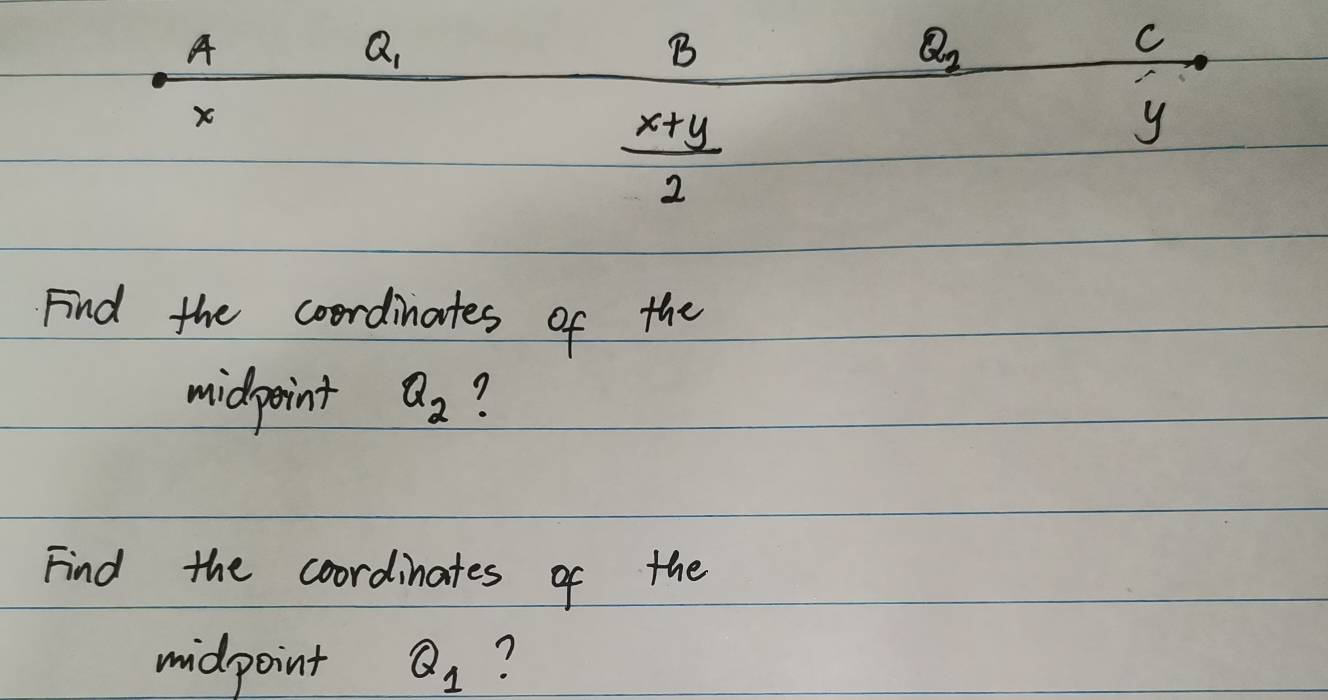 A Q₁ B Q₂ C
x x+y y
2
Find the coordinates of the
midpoint Q₂ ?
Find the coordinates of the
midpoint Q₁ ?